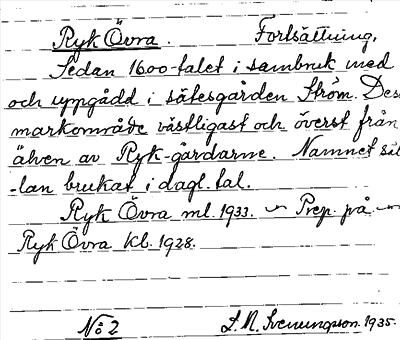 Ryk Övra. Fortsättning.
Sedan 1600-talet i sambruk med
och uppgådd i sätesgården Ström. Des
markområde västligast och överst från
älven av Ryk-gårdarne. Namnet säl
-lan brukat i dagl. tal.
Ryk Övra ml. 1933. — Prep. på. —
Ryk Övra kb. 1928.
No: 2 L. N. Svenungsson. 1935.